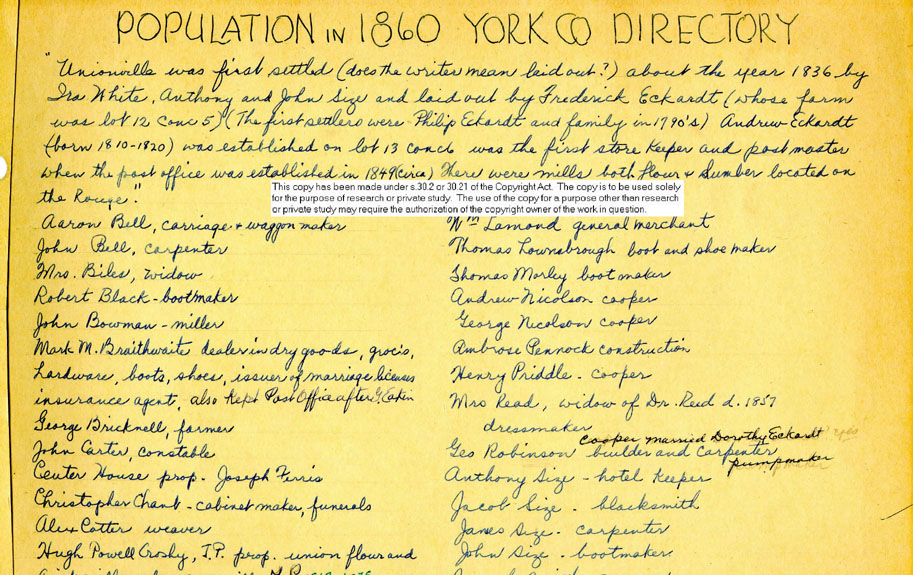 POPULATION IN 1860 YORK CO DIRECTORY
"Unionville was first settled (does the writer mean laid out?) about the year 1836 by
Ira White, Anthony and John Size and laid out by Frederick Eckardt (whose farm
was lot 12 conc 5) (The first settlers were Philip Eckardt and family in 1790's) Andrew Eckardt
(born 1810-1820) was established on lot 13 conc 6 was the first store keeper and post master
when the post office was established in 1849 (circa) There were mills both flour & Lumber located on
the Rouge".
This copy has been made under s.30.2 or 30.21 of the Copyright Act. The copy is to be used solely
for the purpose of research or private study. The use of the copy for a purpose other than research
or private study may require the authorization of the copyright owner of the work in question.
Aaron Bell, carriage & waggon maker
John Bell, carpenter
Mrs. Biles, widow
Robert Black - bootmaker
John Bowman - miller
Mark M. Braithwaite dealer in dry goods, grocis,
hardware, boots, shoes, issuer of marriage licenses
insurance agent, also kept Post Office after G. Eakin
George Bricknell, farmer
John Carter, constable
Center House prop. Joseph Ferris
Christopher Chant - cabinet maker, funerals
Alex Cotter weaver
Hugh Powell Crosby, J.P. prop. union flour and
Wm Lamond general merchant
Thomas Lownsbrough boot and shoe maker
Thomas Morley boot maker
Andrew Nicolson cooper
George Nicolson cooper
Ambrose Pennock construction
Henry Priddle - cooper
Mrs Read, widow of Dr. Reid d. 1857
dressmaker
cooper married Dorothy Eckardt
Geo Robinson builder and Carpenter
pumpmaker
Anthony Size - hotel Keeper
Jacob Size - blacksmith
James Size - carpenter
John Size - bootmaker